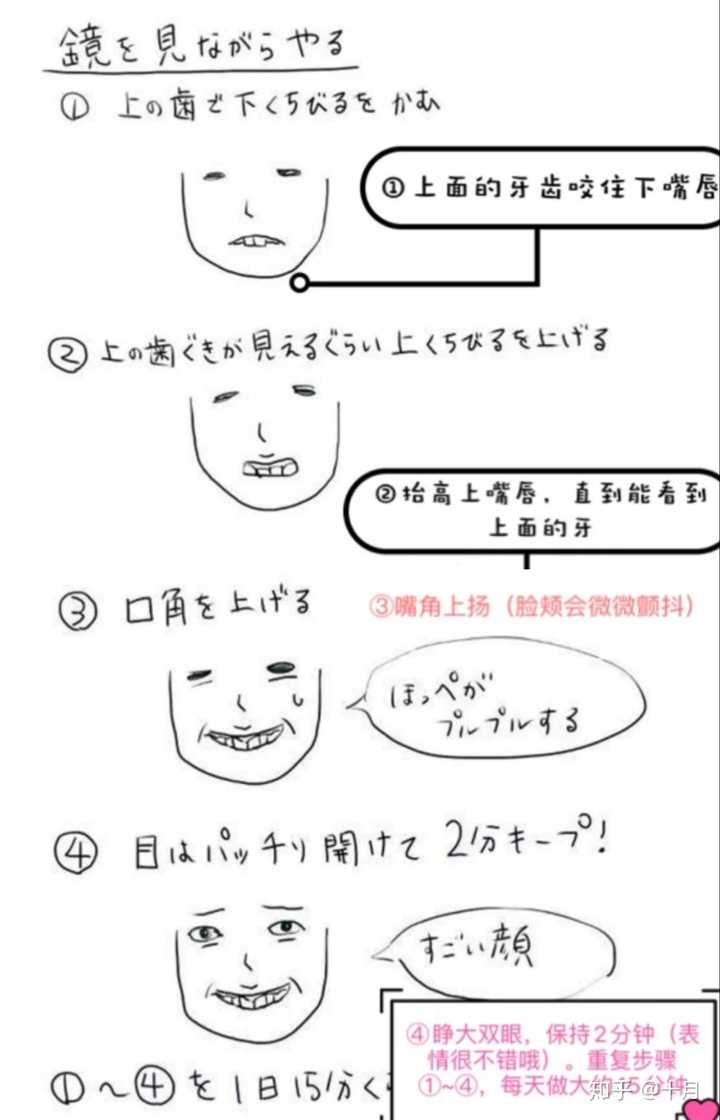 鏡を見ながらやる
① 上の歯で下くちびるをかむ
①上面的牙齿咬住下嘴唇
② 上の歯ぐきが見えるぐらい上くちびるを上げる
②抬高上嘴唇，直到能看到
上面的牙
③ 口角を上げる
③嘴角上扬（脸颊会微微颤抖）
ほっぺが
プルプルする
④ 目はパッチリ開けて2分キープ!
すごい顔
④睁大双眼，保持2分钟（表
情很不错哦）。重复步骤
①~④，每天做大 5分钟
①～④を1日15分く
知乎 @十月